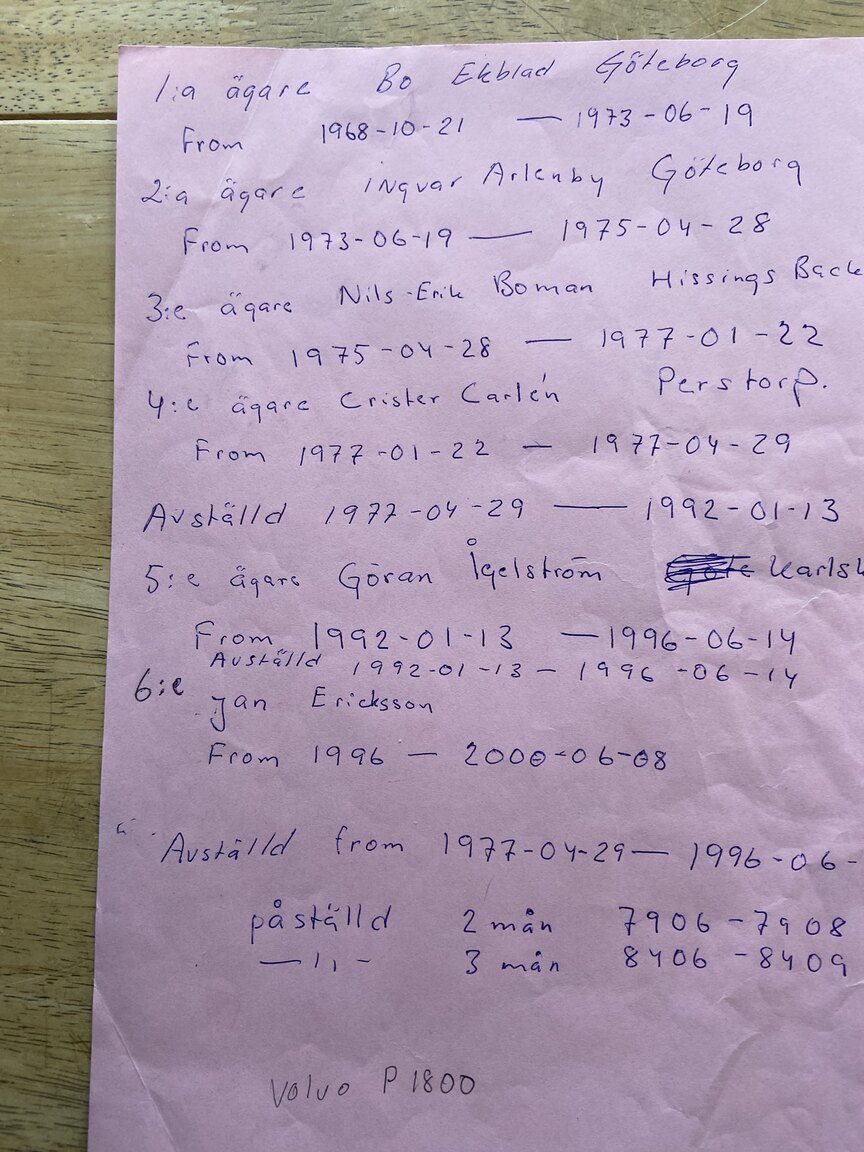 1:a ägare Bo Ekblad Göteborg
From 1968-10-21 — 1973-06-19
2:a ägare ingvar Arlenby Göteborg
From 1973-06-19 — 1975-04-28
3:e ägare Nils-Erik Boman Hissings Back
From 1975-04-28 — 1977-01-22
4:e ägare Crister Carlén Perstorp.
From 1977-01-22 — 1977-04-29
Avställd 1977-04-29 — 1992-01-13
5:e ägare Göran Ågelström Karlsh
From 1992-01-13 — 1996-06-14
Avställd 1992-01-13 — 1996-06-14
6:e Jan Ericksson
From 1996 — 2000-06-08
Avställd from 1977-04-29 — 1996-06-
påställd 2 mån 7906-7908
—11- 3 mån 8406-8409
Volvo P1800